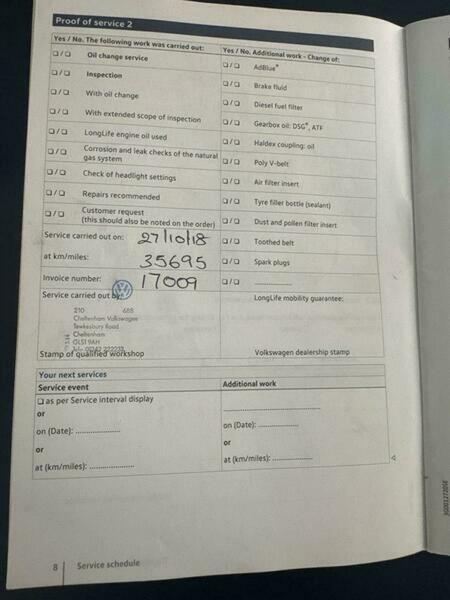 Proof of service 2
Yes / No. The following work was carried out:
❑ / ❑ Oil change service
❑ / ❑ Inspection
❑ / ❑ With oil change
❑ / ❑ With extended scope of inspection
❑ / ❑ LongLife engine oil used
❑ / ❑ Corrosion and leak checks of the natural
gas system
❑ / ❑ Check of headlight settings
❑ / ❑ Repairs recommended
❑ / ❑ Customer request
(this should also be noted on the order)
Service carried out on: 27/10/18
at km/miles: 35695
Invoice number: 17009
Service carried out by:
210 688
Cheltenham Volkswagen
Tewkesbury Road
Cheltenham
GL51 9AH
Stamp of qualified workshop
Yes / No. Additional work - Change of:
❑ / ❑ AdBlue®
❑ / ❑ Brake fluid
❑ / ❑ Diesel fuel filter
❑ / ❑ Gearbox oil: DSG®, ATF
❑ / ❑ Haldex coupling: oil
❑ / ❑ Poly V-belt
❑ / ❑ Air filter insert
❑ / ❑ Tyre filler bottle (sealant)
❑ / ❑ Dust and pollen filter insert
❑ / ❑ Toothed belt
❑ / ❑ Spark plugs
❑ / ❑ ....................
LongLife mobility guarantee:
Volkswagen dealership stamp
Your next services
Service event
❑ as per Service interval display
or
on (Date): ....................
or
at (km/miles): ....................
Additional work
........................................
on (Date): ....................
or
at (km/miles): ....................
8 Service schedule